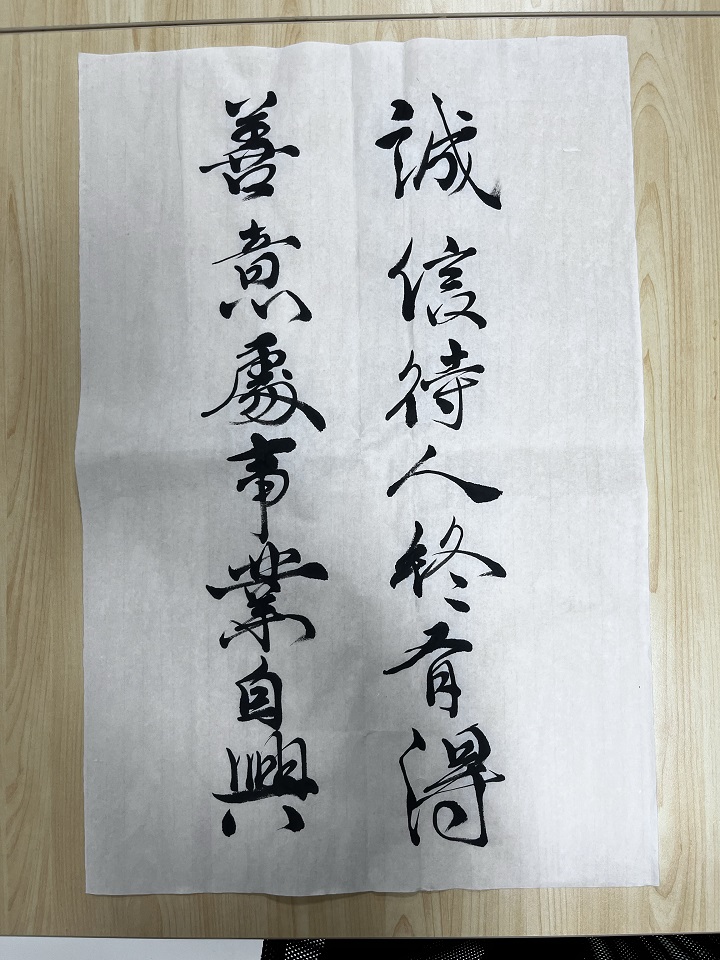 誠信待人終有得
善意處事業自興